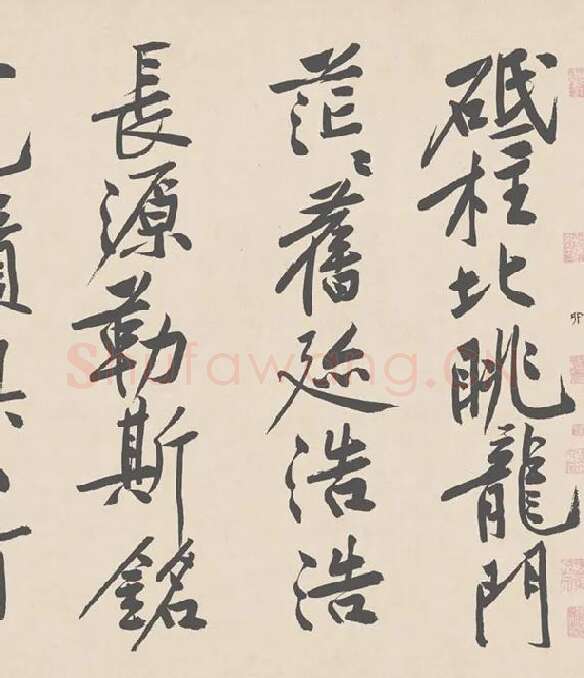 砥柱北眺龍門
茫〻舊迹浩浩
長源勒斯銘
Shufawang.CN